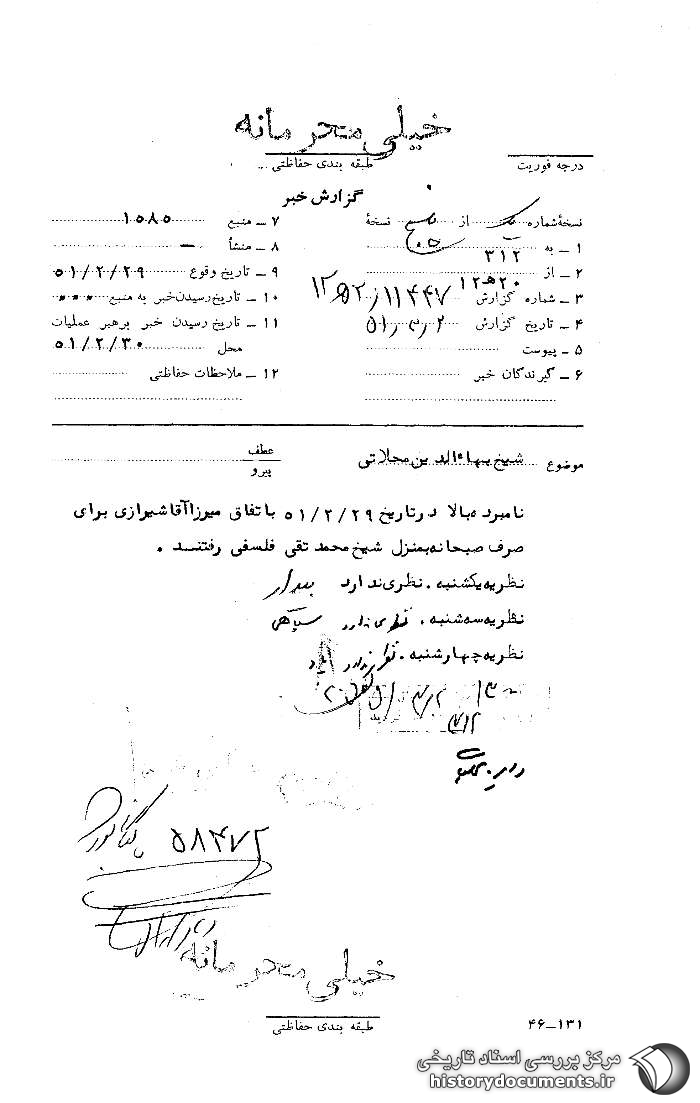 خیلی محرمانه
درجه فوریت
طبقه بندی حفاظتی
گزارش خبر
نسخهٔ شماره یک از نسخهٔ
۱ ـ به ۳۱۲
۲ ـ از ۲۰ هـ ۱۲
۳ ـ شماره گزارش
۴ ـ تاریخ گزارش ۵۱/۳/۲
۵ ـ پیوست
۶ ـ گیرندگان خبر
۷ ـ منبع ۱۵۸۵
۸ ـ منشأ ـ
۹ ـ تاریخ وقوع ۵۱/۲/۲۹
۱۰ ـ تاریخ رسیدن خبر به منبع
۱۱ ـ تاریخ رسیدن خبر برهبر عملیات
محل ۵۱/۲/۳۰
۱۲ ـ ملاحظات حفاظتی
موضوع شیخ بهاءالدین محلاتی
عطف
پیرو
نامبرده بالا در تاریخ ۵۱/۲/۲۹ باتفاق میرزا آقا شیرازی برای
صرف صبحانه بمنزل شیخ محمد تقی فلسفی رفتند .
نظریه یکشنبه . نظری ندارد
نظریه سه شنبه . نظری ندارد
نظریه چهارشنبه . نظری ندارد
۵۸۴۷۲
خیلی محرمانه
طبقه بندی حفاظتی
۴۶ـ۱۳۱
مرکز بررسی اسناد تاریخی
historydocuments.ir